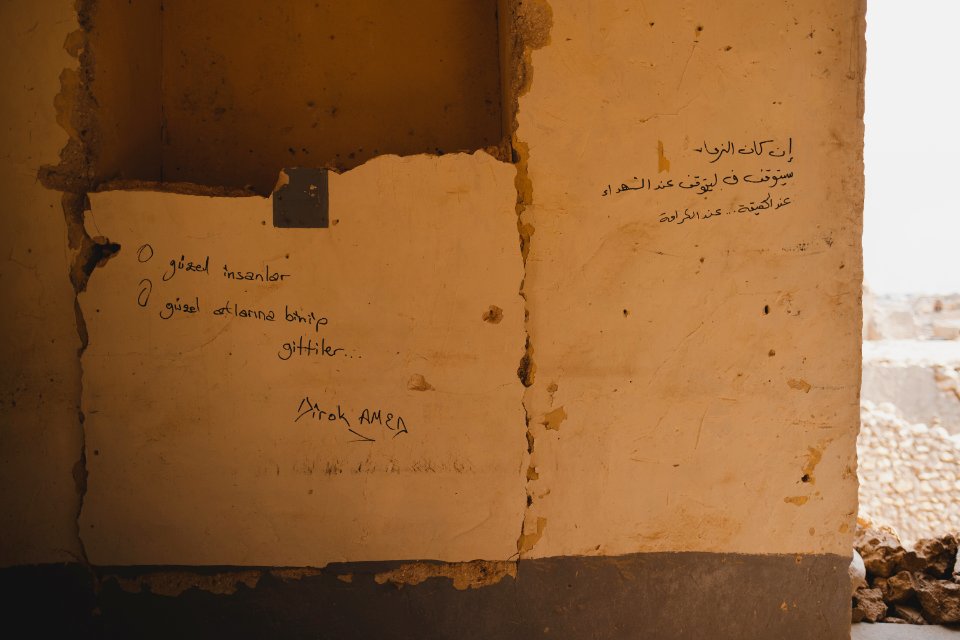 O güzel insanlar
O güzel atlarına binip
gittiler...
Dirok AMED
إن كان الزمان
سيتوقف في ليتوقف عند الشهداء
عند الحقيقة... عند الكرامة